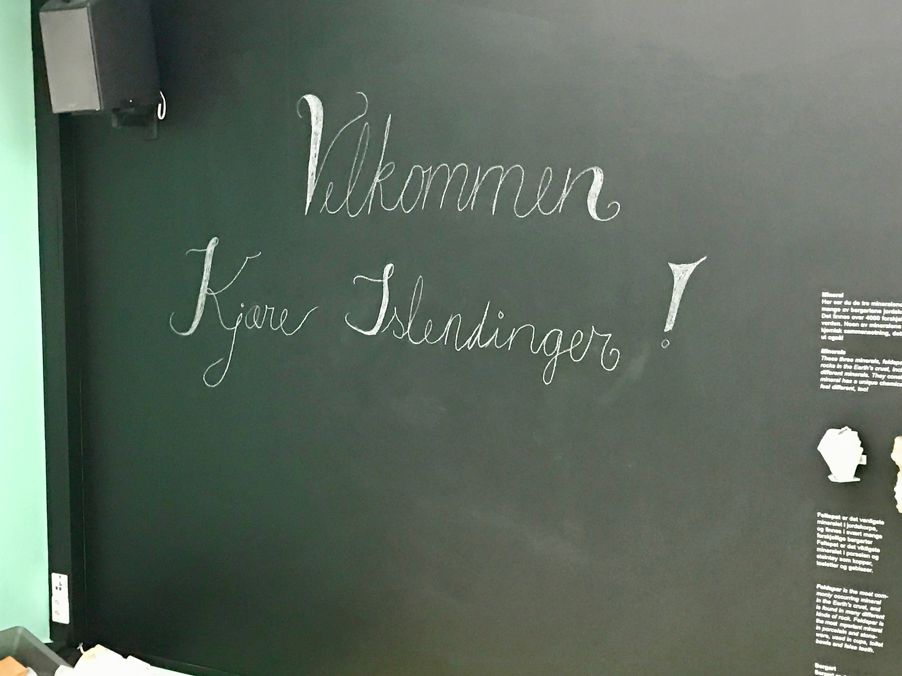 Velkommen
Kjære Islendinger!
Mineral
Her ser du de tre mineralene
menge av bergartene jordsko
Det finnes over 4000 forskjel
verden. Noen av mineralene
kjemisk sammensetning, det
ut også!
Minerals
These three minerals, feldspa
rocks in the Earth's crust, incl
different minerals. They cons
mineral has a unique chemica
feel different, too!
Feltspat er det vanligste
mineralet i jordskorpa,
og finnes i svært mange
forskjellige bergarter
Feltspat er det viktigste
mineralet i porselen og
steintøy som kopper,
toaletter og gebisser.
Feldspar is the most com-
monly occurring mineral
in the Earth's crust, and
is found in many different
kinds of rock. Feldspar is
the most important mineral
in porcelain and stone-
ware, used in cups, toilet
bowls and false teeth.
Bergart